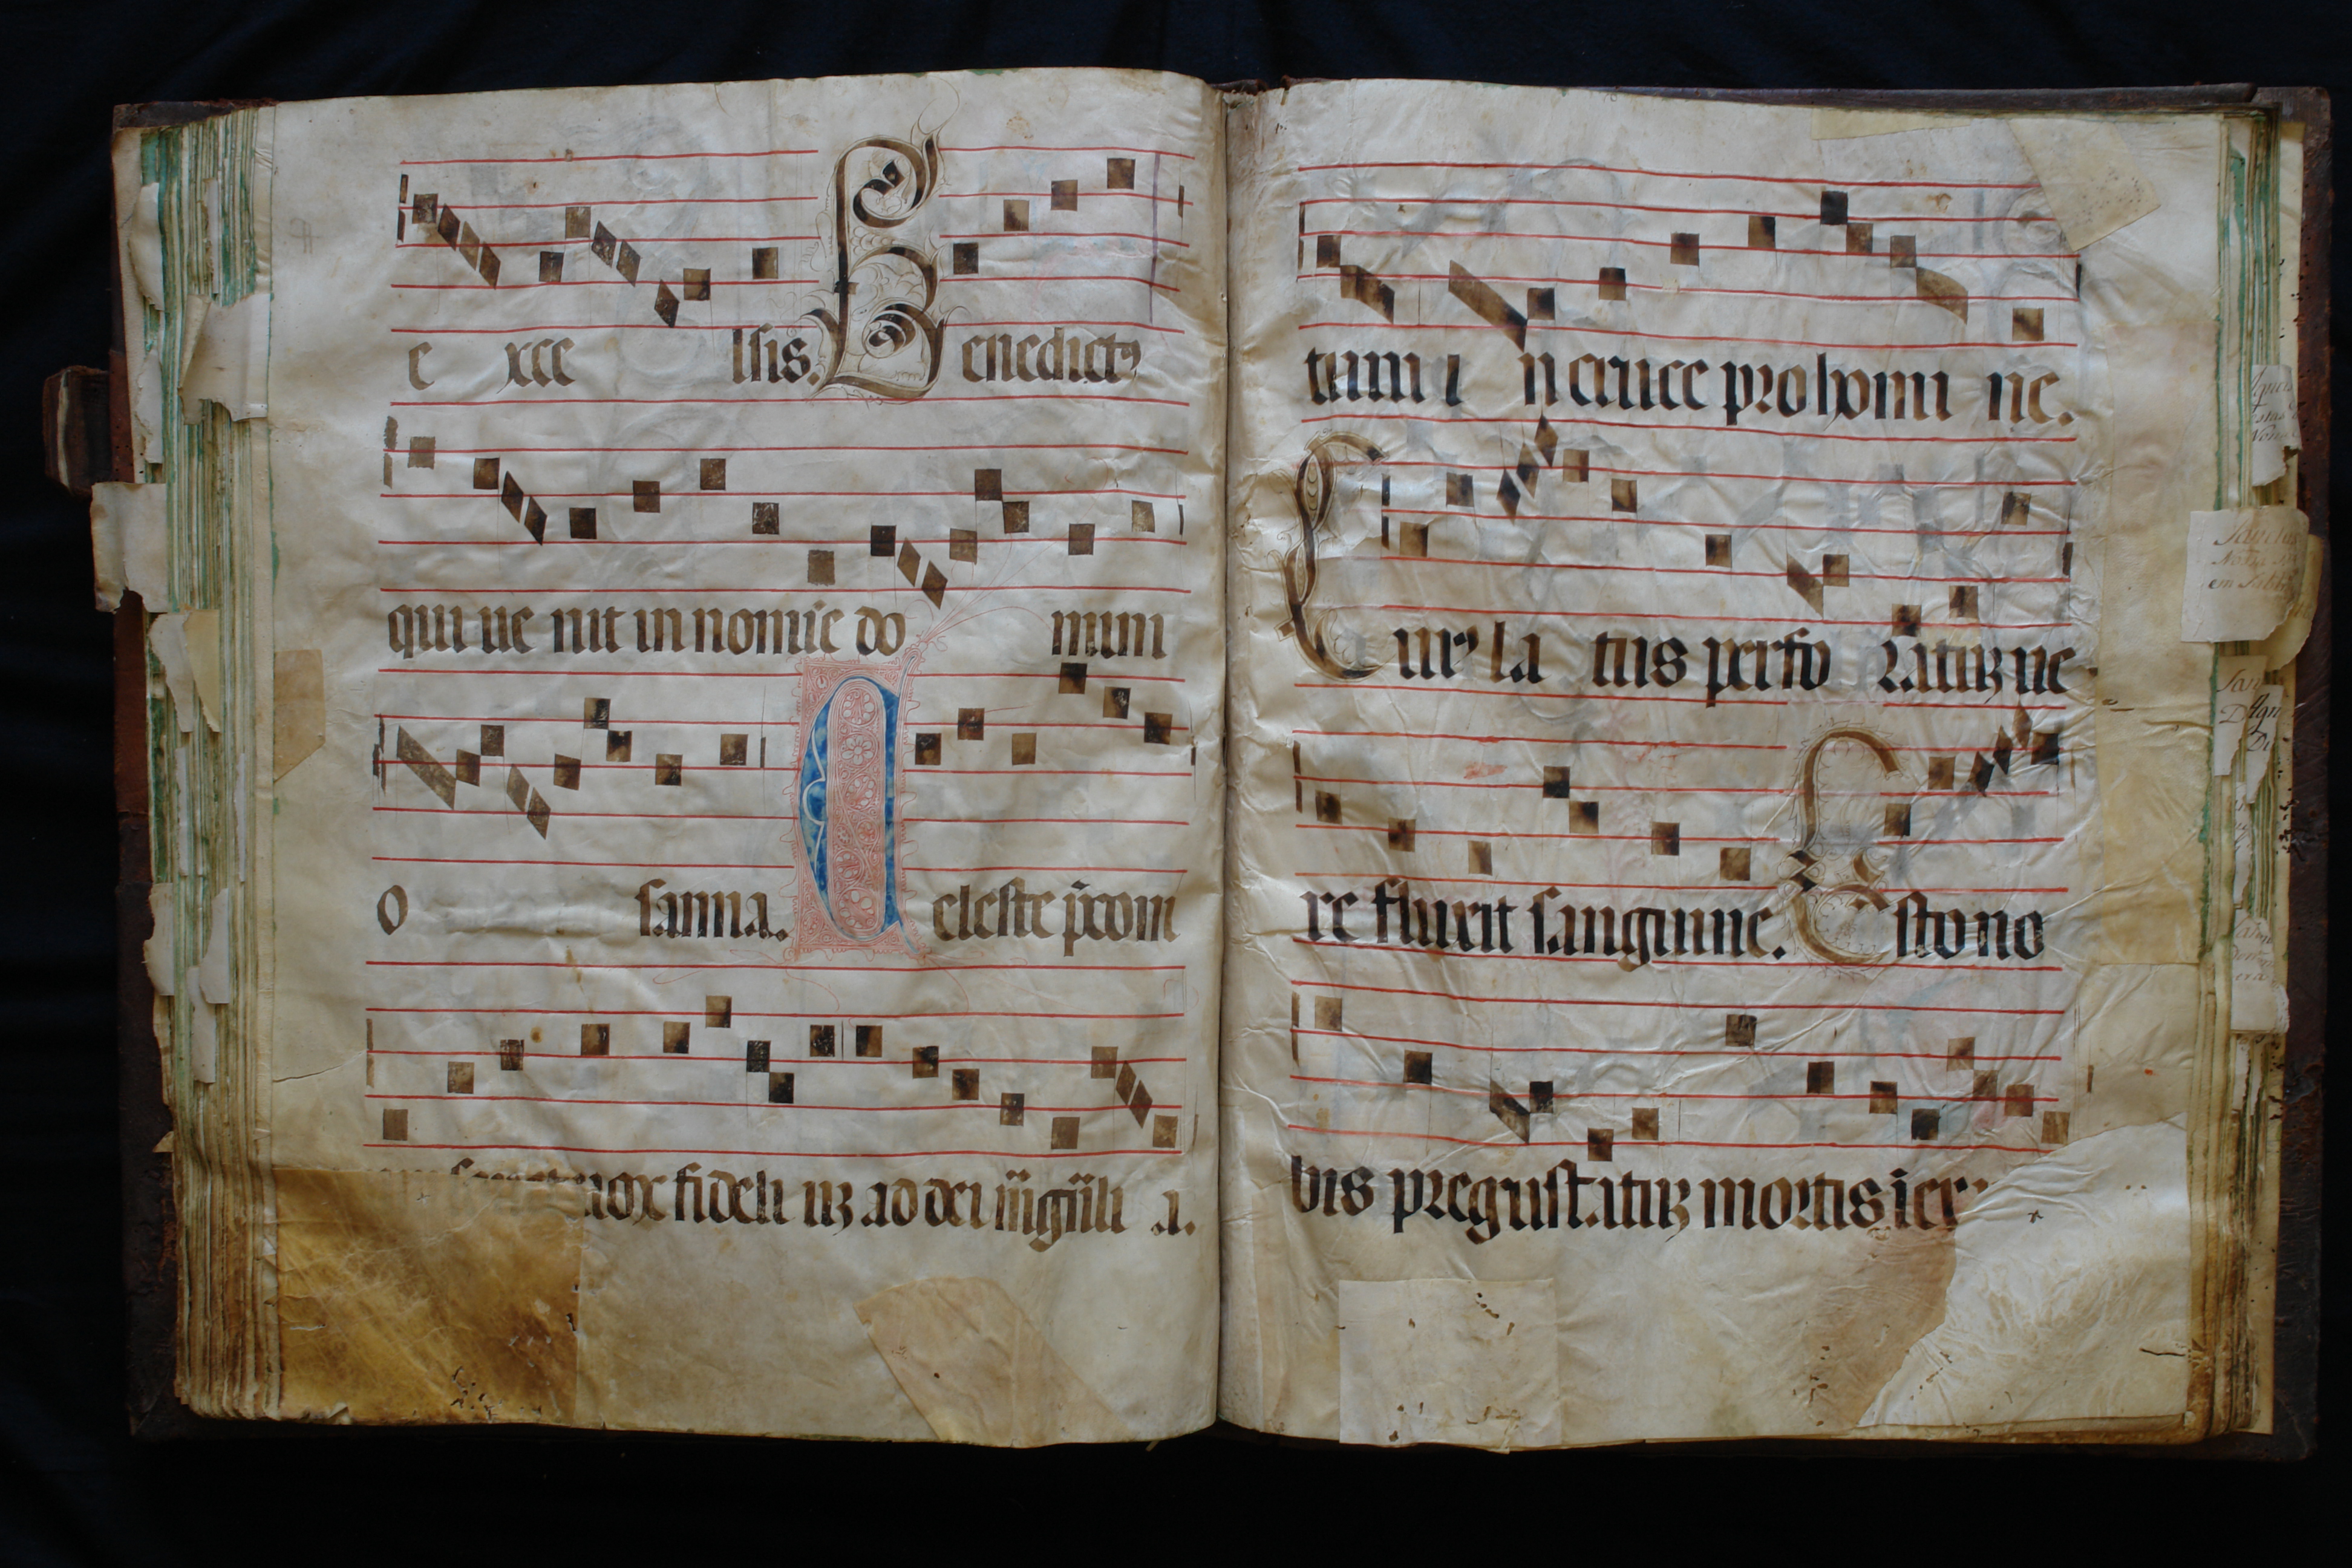 e xce lsis. Benedictꝰ
qui ue nit in nomīe do mini
O sanna. Celeste p̄coni
mox fideli uʒ ad dei
tum i n cruce pro homi ne.
Cuiꝰ la tus perfo ratuʒ ue
re fluxit sanguine. Esto no
bis pregustatuʒ mortis